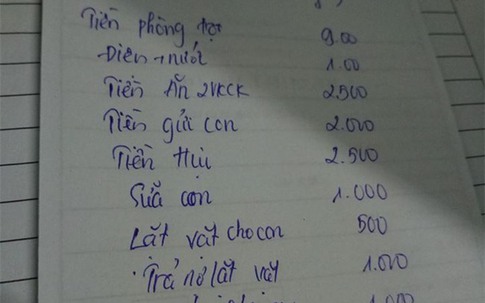 Tiền phòng trọ 900
Điện + nước 1.00
Tiền Ăn 2VKCK 2.500
Tiền gửi con 2.000
Tiền Hụi 2.500
Sữa con 1.000
Lặt vặt cho con 500
Trả nợ lặt vặt 1.000
1.000